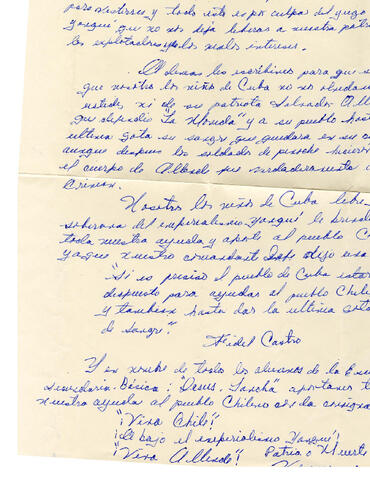 para vestirnos y todo esto es por culpa del yugo
yanqui que no nos deja liberar a nuestra patria
los explotadores y los malos intereses.
Además les escribimos para que se
que nosotros los niños de Cuba no olvidamos
ustedes, ni de su patriota Salvador All
que defendió "La Moneda" y a su pueblo hasta
ultima gota de su sangre que quedara en su c
aunque después los soldados de pinoche hicieron
el cuerpo de Allende fue verdaderamente u
Crimen.
Nosotros los niños de Cuba libre
soberana del imperialismo yanqui le brinda
toda nuestra ayuda y aporte al pueblo C
ya que nuestro comandante Jefe dijo una
"Si es preciso el pueblo de Cuba estar
dispuesto para ayudar al pueblo Chile
y tambien hasta dar la ultima gota
de sangre".
Fidel Castro
Y en nombre de todo los alumnos de la Escu
secundaria. Básica: "Desus. Sancha" aportamos t
nuestro ayuda al pueblo Chileno con la consigna
"¡Viva Chile!
¡Abajo el imperialismo Yanqui!
"¡Viva Allende! Patria o Muerte